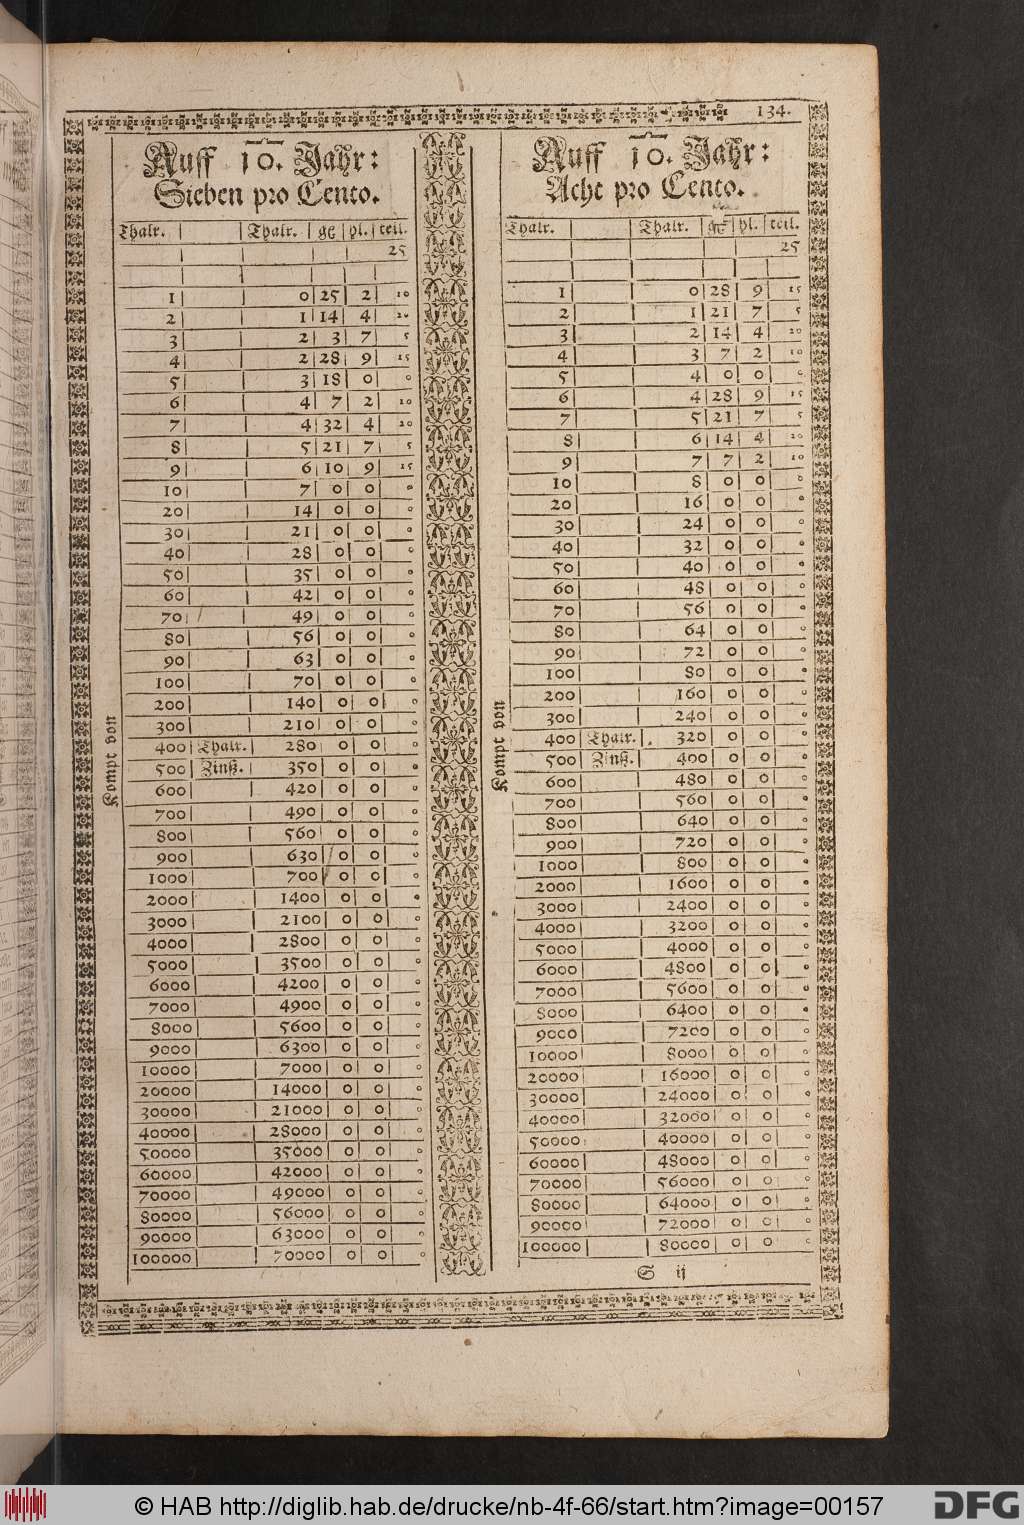 134.
Auff 10. Jahr:
Sieben pro Cento.
Thalr. Thalr. gℓ pl. teil.
25
1 0 25 2 10
2 1 14 4 20
3 2 3 7 5
4 2 28 9 15
5 3 18 0 0
6 4 7 2 10
7 4 32 4 20
8 5 21 7 5
9 6 10 9 15
10 7 0 0 0
20 14 0 0 0
30 21 0 0 0
40 28 0 0 0
50 35 0 0 0
60 42 0 0 0
70 49 0 0 0
80 56 0 0 0
90 63 0 0 0
100 70 0 0 0
200 140 0 0 0
300 210 0 0 0
400 Thalr. 280 0 0 0
500 Zinß. 350 0 0 0
600 420 0 0 0
700 490 0 0 0
800 560 0 0 0
900 630 0 0 0
1000 700 0 0 0
2000 1400 0 0 0
3000 2100 0 0 0
4000 2800 0 0 0
5000 3500 0 0 0
6000 4200 0 0 0
7000 4900 0 0 0
8000 5600 0 0 0
9000 6300 0 0 0
10000 7000 0 0 0
20000 14000 0 0 0
30000 21000 0 0 0
40000 28000 0 0 0
50000 35000 0 0 0
60000 42000 0 0 0
70000 49000 0 0 0
80000 56000 0 0 0
90000 63000 0 0 0
100000 70000 0 0 0
Kompt von
Auff 10. Jahr:
Acht pro Cento.
Thalr. Thalr. gℓ pl. teil.
25
1 0 28 9 15
2 1 21 7 5
3 2 14 4 20
4 3 7 2 10
5 4 0 0 0
6 4 28 9 15
7 5 21 7 5
8 6 14 4 20
9 7 7 2 10
10 8 0 0 0
20 16 0 0 0
30 24 0 0 0
40 32 0 0 0
50 40 0 0 0
60 48 0 0 0
70 56 0 0 0
80 64 0 0 0
90 72 0 0 0
100 80 0 0 0
200 160 0 0 0
300 240 0 0 0
400 Thalr. 320 0 0 0
500 Zinß. 400 0 0 0
600 480 0 0 0
700 560 0 0 0
800 640 0 0 0
900 720 0 0 0
1000 800 0 0 0
2000 1600 0 0 0
3000 2400 0 0 0
4000 3200 0 0 0
5000 4000 0 0 0
6000 4800 0 0 0
7000 5600 0 0 0
8000 6400 0 0 0
9000 7200 0 0 0
10000 8000 0 0 0
20000 16000 0 0 0
30000 24000 0 0 0
40000 32000 0 0 0
50000 40000 0 0 0
60000 48000 0 0 0
70000 56000 0 0 0
80000 64000 0 0 0
90000 72000 0 0 0
100000 80000 0 0 0
Kompt von
S ij
© HAB http://diglib.hab.de/drucke/nb-4f-66/start.htm?image=00157
DFG